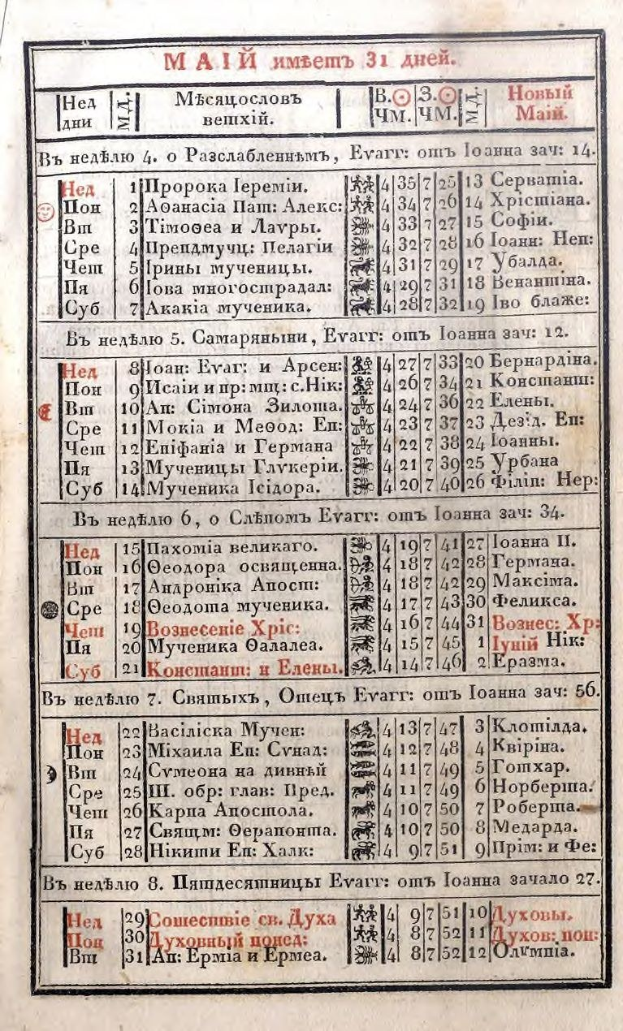 МАІЙ имѣетъ 31 дней.
Нед дни М.Д. Мѣсяцословъ ветхій. В.☉ ЧМ. З.☉ ЧМ. М.Д. Новый Маій.
Въ недѣлю 4. о Разслабленнѣмъ, Еѵагг: отъ Іоанна зач: 14.
Нед 1 Пророка Іереміи. 4 35 7 25 13 Серватіа.
Пон 2 Аѳанасіа Пат: Алекс: 4 34 7 26 14 Хрістіана.
Вт 3 Тімоѳеа и Лаѵры. 4 33 7 27 15 Софіи.
Сре 4 Препдмучц: Пелагіи 4 32 7 28 16 Іоанн: Неп:
Чет 5 Ірины мученицы. 4 31 7 29 17 Убалда.
Пя 6 Іова многострадал: 4 29 7 31 18 Венантіна.
Суб 7 Акакіа мученика. 4 28 7 32 19 Іво блаже:
Въ недѣлю 5. Самаряныни, Еѵагг: отъ Іоанна зач: 12.
Нед 8 Іоан: Еѵаг: и Арсен: 4 27 7 33 20 Бернардіна.
Пон 9 Исаіи и пр: мщ: с. Нік: 4 26 7 34 21 Констант:
Вт 10 Ап: Сімона Зилота. 4 24 7 36 22 Елены.
Сре 11 Мокіа и Меѳод: Еп: 4 23 7 37 23 Дезід. Еп:
Чет 12 Епіфаніа и Германа 4 22 7 38 24 Іоанны.
Пя 13 Мученицы Глѵкеріи. 4 21 7 39 25 Урбана
Суб 14 Мученика Ісідора. 4 20 7 40 26 Філіп: Нер:
Въ недѣлю 6, о Слѣпомъ Еѵагг: отъ Іоанна зач: 34.
Нед 15 Пахоміа великаго. 4 19 7 41 27 Іоанна II.
Пон 16 Ѳеодора освященна. 4 18 7 42 28 Германа.
Вт 17 Андроніка Апост: 4 18 7 42 29 Максіма.
Сре 18 Ѳеодота мученика. 4 17 7 43 30 Феликса.
Чет 19 Вознесеніе Хріс: 4 16 7 44 31 Вознес: Хр:
Пя 20 Мученика Ѳалалеа. 4 15 7 45 1 Іуній Нік:
Суб 21 Констант: и Елены. 4 14 7 46 2 Еразма.
Въ недѣлю 7. Святыхъ, Отецъ Еѵагг: отъ Іоанна зач: 56.
Нед 22 Васіліска Мучен: 4 13 7 47 3 Клотілда.
Пон 23 Міхаила Еп: Сѵнад: 4 12 7 48 4 Квіріна.
Вт 24 Сѵмеона на дивнѣй 4 11 7 49 5 Готхар.
Сре 25 III. обр: глав: Пред. 4 11 7 49 6 Норберта.
Чет 26 Карпа Апостола. 4 10 7 50 7 Роберта.
Пя 27 Святм: Ѳерапонта. 4 10 7 50 8 Медарда.
Суб 28 Нікити Еп: Халк: 4 9 7 51 9 Прім: и Фе:
Въ недѣлю 8. Пятдесятницы Еѵагг: отъ Іоанна зачало 27.
Нед 29 Сошествіе св. Духа 4 9 7 51 10 Духовы.
Пон 30 Духовный понед: 4 8 7 52 11 Духов: пон:
Вт 31 Ап: Ерміа и Ермеа. 4 8 7 52 12 Олѵмпіа.